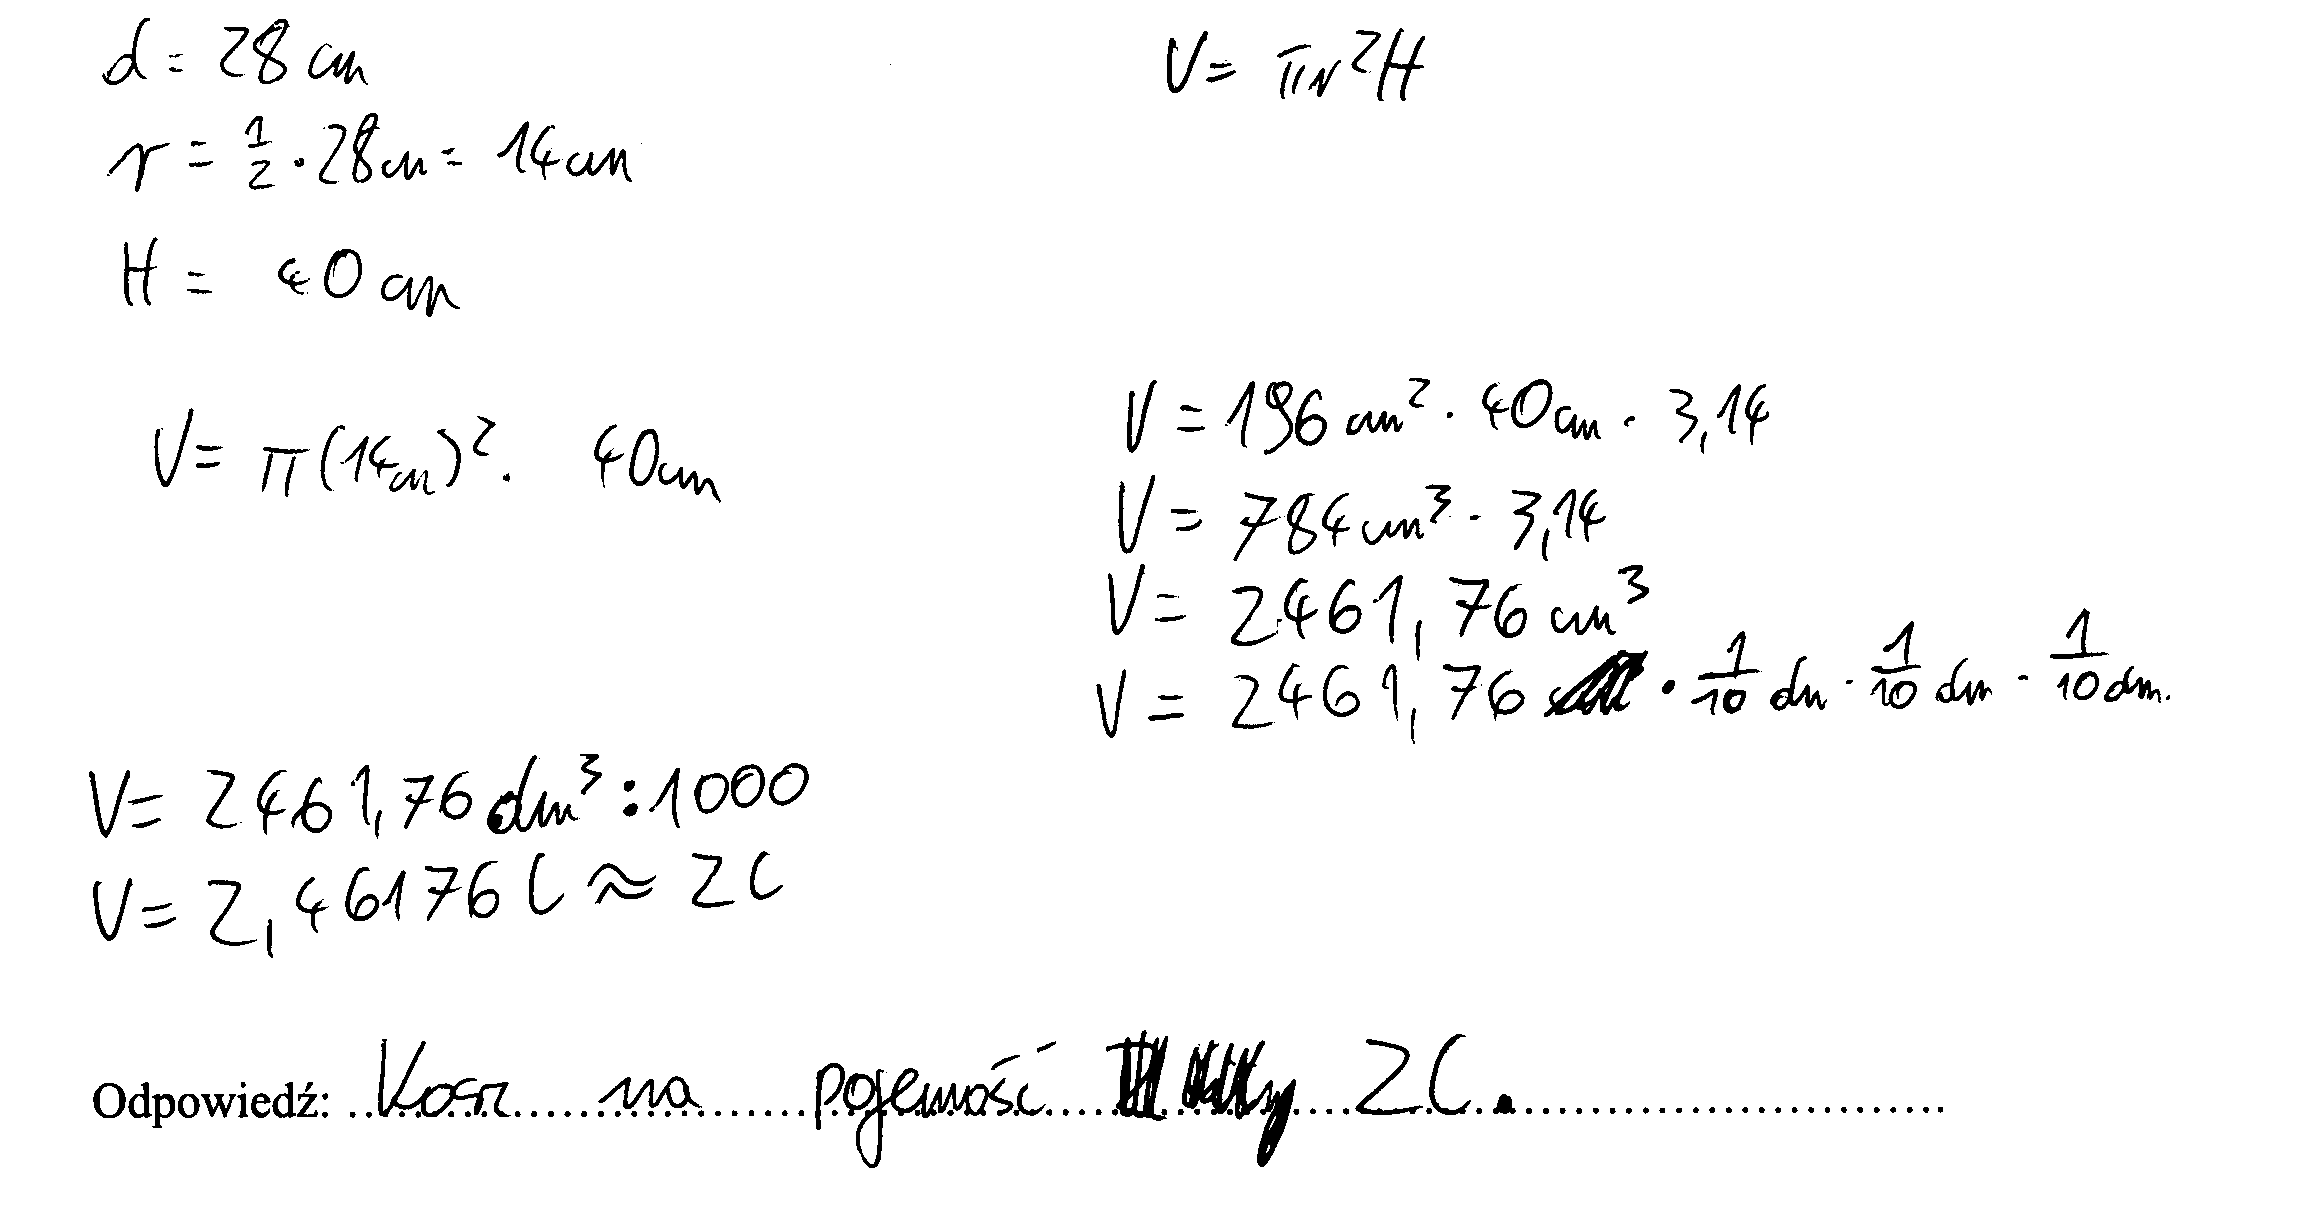 d = 28 cm
V = πr²H
r = 1/2 · 28 cm = 14 cm
H = 40 cm
V = π(14 cm)² · 40 cm
V = 196 cm² · 40 cm · 3,14
V = 784 cm³ · 3,14
V = 2461,76 cm³
V = 2461,76 · 1/10 dm · 1/10 dm · 1/10 dm.
V = 2461,76 dm³ : 1000
V = 2,46176 l ≈ 2 l
Odpowiedź: Kosz ma pojemność 2 l.